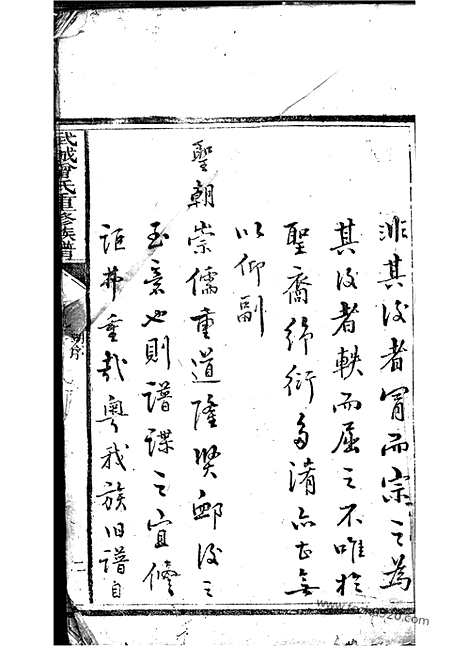 非其後者冒而宗之為
其後者軼而屈之不唯於
聖裔繁衍多淆亦且無
以仰副
聖朝崇儒重道隆賢卹後之
至意也則譜諜之宜修
詎弗重哉粵我族旧譜自
武城曾氏重修族譜
序
二